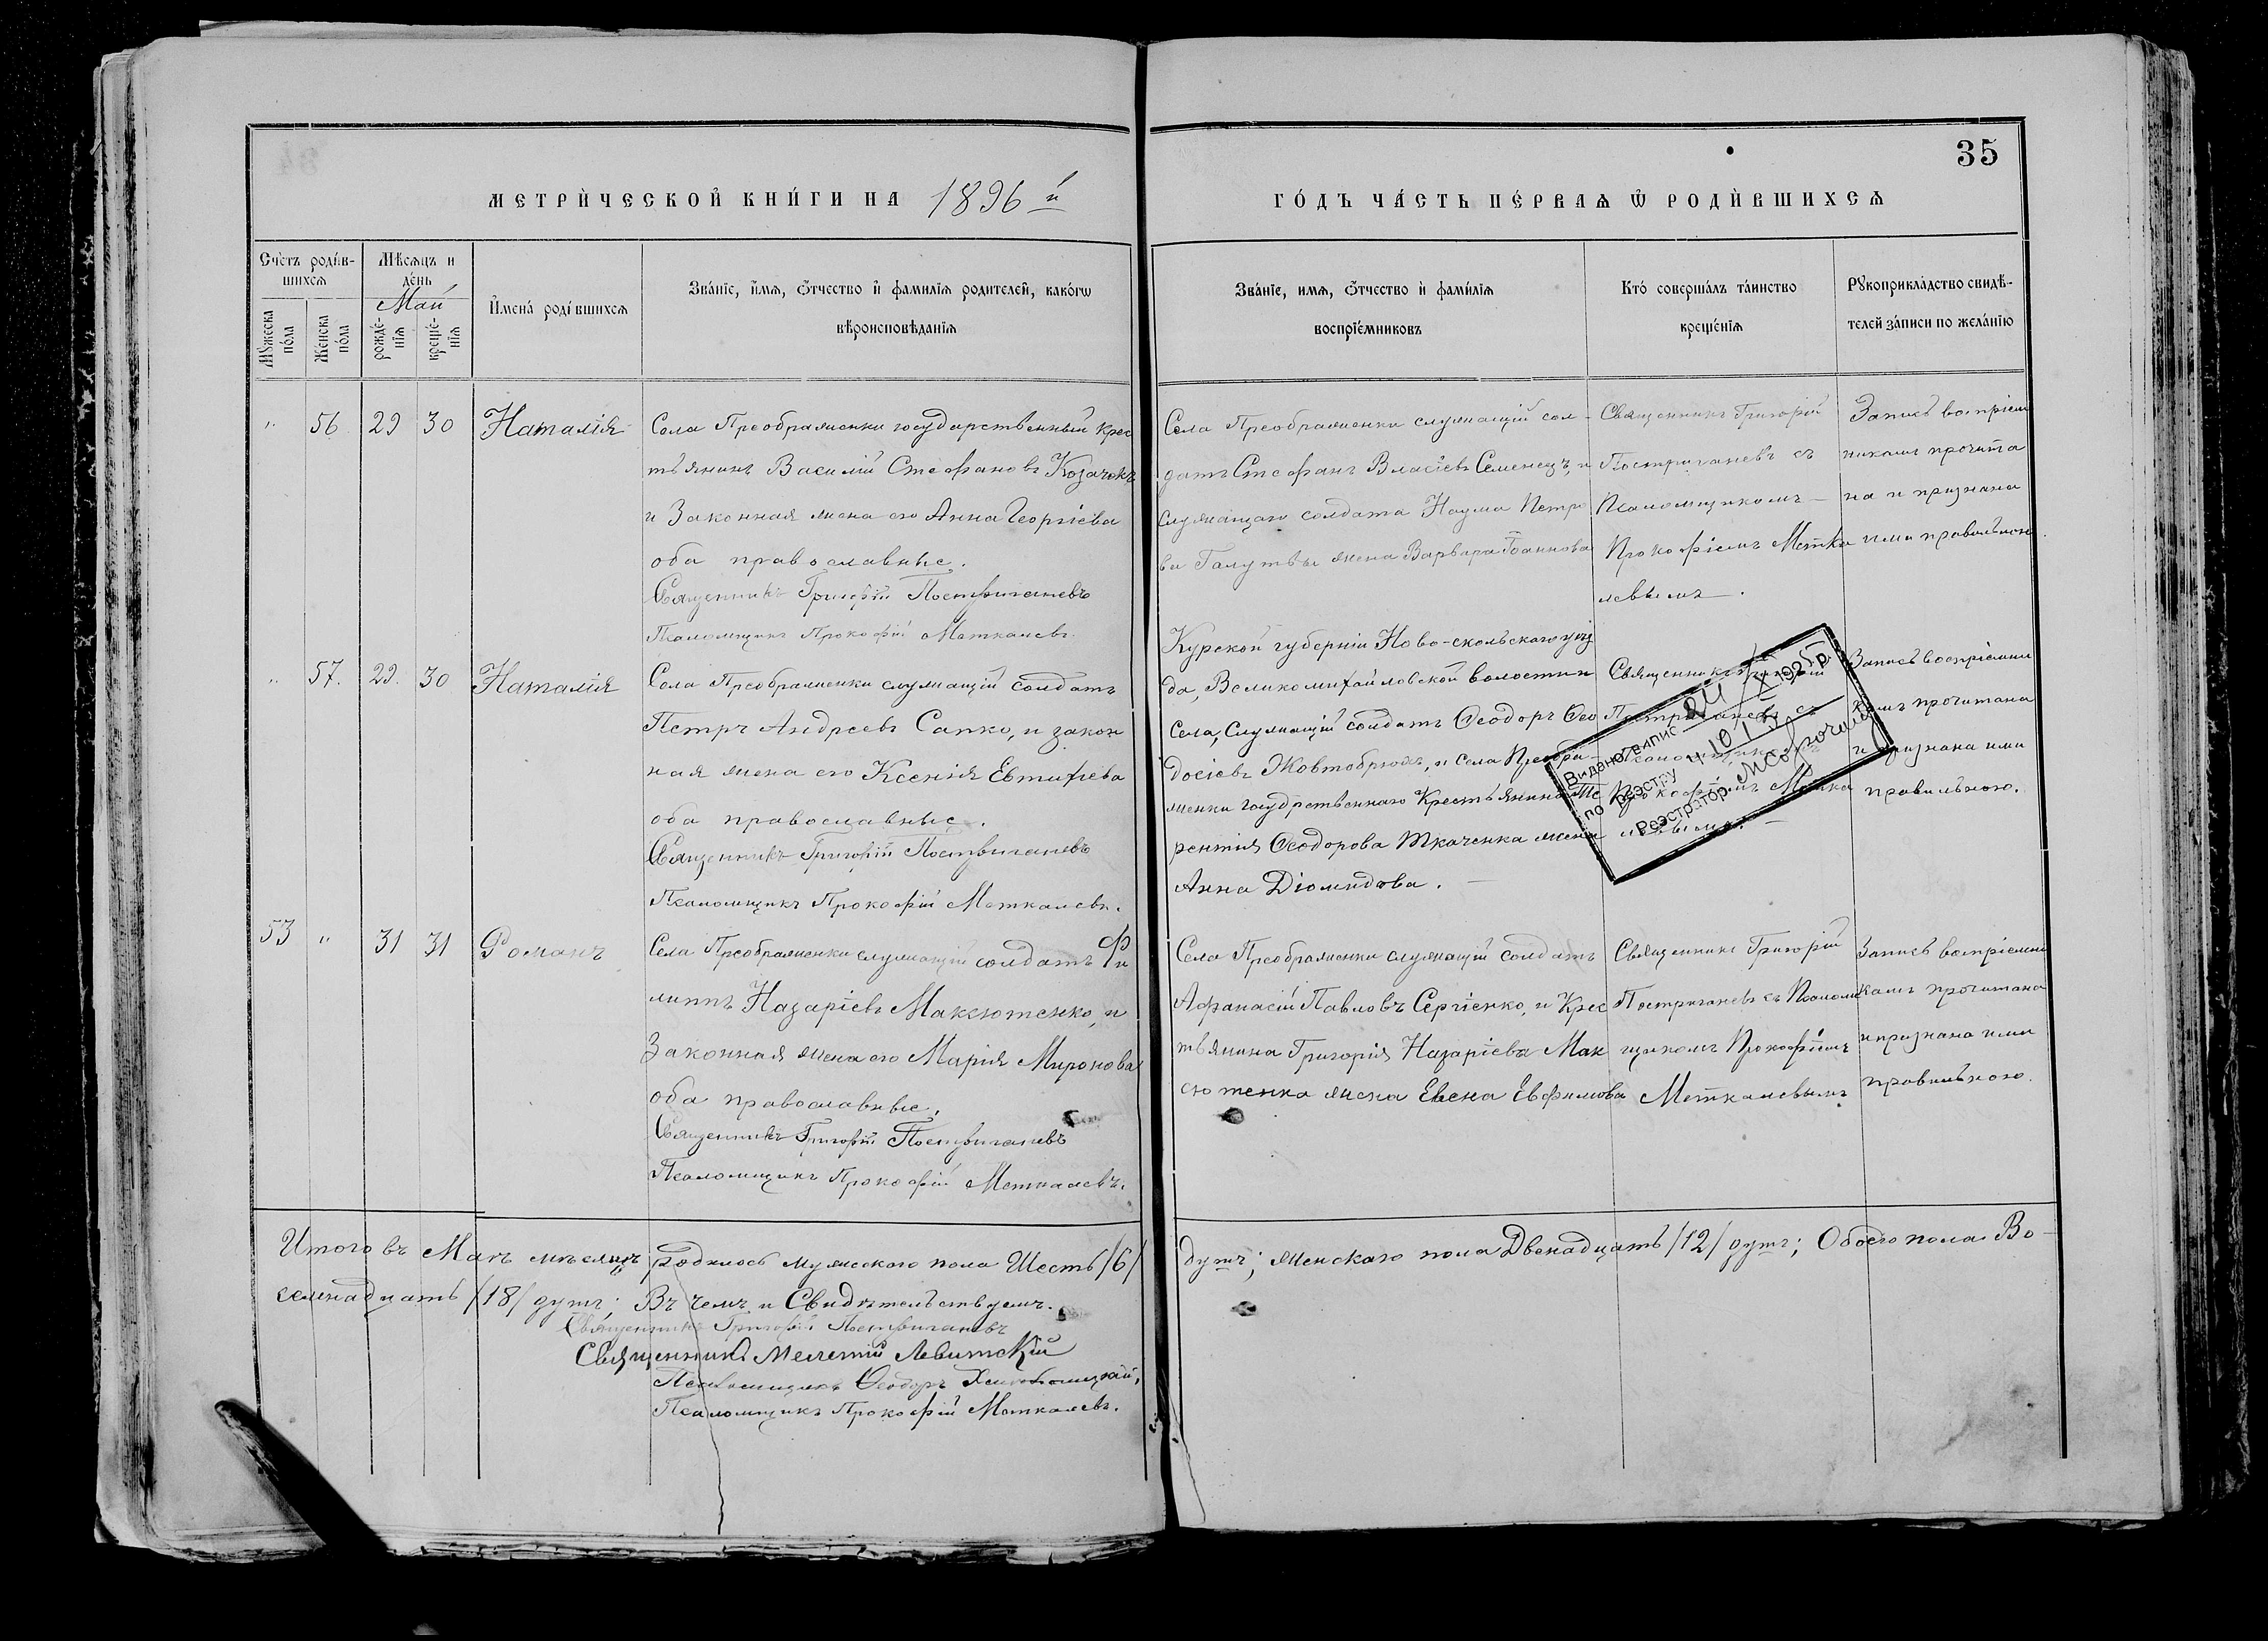 35
МЕТРИЧЕСКОЙ КНИГИ НА 1896 й
ГОДЪ ЧАСТЬ ПЕРВАѦ Ѿ РОДИВШИХСѦ
Счетъ родив-
шихсѧ
Мѣсѧцъ и
день
Май
Мужеска
пола
Женска
пола
рожде-
нїѧ
креще-
нїѧ
Имена родившихсѧ
Званїе, имѧ, ѿтчество и фамилїѧ родителей, какогѡ
вѣроисповѣданїѧ
Званїе, имѧ, ѿтчество и фамилїѧ
воспрїемниковъ
Кто совершалъ таинство
крещенїѧ
Рукоприкладство свидѣ-
телей записи по желанїю
" 56 29 30 Наталія
Села Преображенки государственный крес
тьянинъ Василій Стефановъ Козачекъ
и Законная жена его Анна Георгіева
оба православные.
Священникъ Григорій Постригачевъ
Псаломщикъ Прокофій Меткалевъ.
Села Преображенки служащій сол-
датъ Стефанъ Власіевъ Семенецъ, и
служащаго солдата Наума Петро
ва Галутвы жена Варвара Іоаннова
Священникъ Григорій
Постригачевъ съ
Псаломщикомъ —
Прокофіемъ Метка
левымъ.
Запись воспріем
никами прочита
на и признана
ими правильною.
" 57. 29. 30 Наталія
Села Преображенки служащій солдатъ
Петръ Андреевъ Сапко, и закон
ная жена его Ксенія Евтихіева
оба православные.
Священникъ Григорій Постригачевъ
Псаломщикъ Прокофій Меткалевъ.
Курской губерніи Ново-скольскаго уѣз
да, Великомихайловской волости и
села, Служащій солдатъ Ѳеодоръ Ѳео
досіевъ Жовтобрюхъ, и села Преобра-
женки государственнаго Крестьянина Те
рентія Ѳеодорова Ткаченка жена
Анна Діомидова. —
Священникъ Григорій
Постригачевъ съ
Псаломщикомъ
Прокофіемъ Метка
левымъ. —
Запись воспріемни
камъ прочитана
и признана ими
правильною.
Видано випис
по реэстру ч. 101
Реэстратор
53 " 31 31 Романъ
Села Преображенки служащій солдатъ Фи
липпъ Назаріевъ Максютенко, и
Законная жена его Марія Миронова
оба православные.
Священникъ Григорій Постригачевъ
Псаломщикъ Прокофій Меткалевъ.
Села Преображенки служащій солдатъ
Афанасій Павловъ Сергіенко, и Крес
тьянина Григорія Назаріева Мак
сютенка жена Елена Евфимова
Священникъ Григорій
Постригачевъ съ Псалом
щикомъ Прокофіемъ
Меткалевымъ
Запись воспріемни
камъ прочитана
и признана ими
правильною.
Итого въ Маѣ мѣсяцѣ родилось мужескаго пола Шесть /6/
душъ; женскаго пола Двенадцать /12/ душъ; Обоего пола Во-
семнадцать /18/ душъ; Въ чемъ и Свидѣтельствуемъ.
Священникъ Григорій Постригачевъ
Священникъ Мелетій Левитскій
Псаломщикъ Ѳеодоръ
Псаломщикъ Прокофій Меткалевъ.